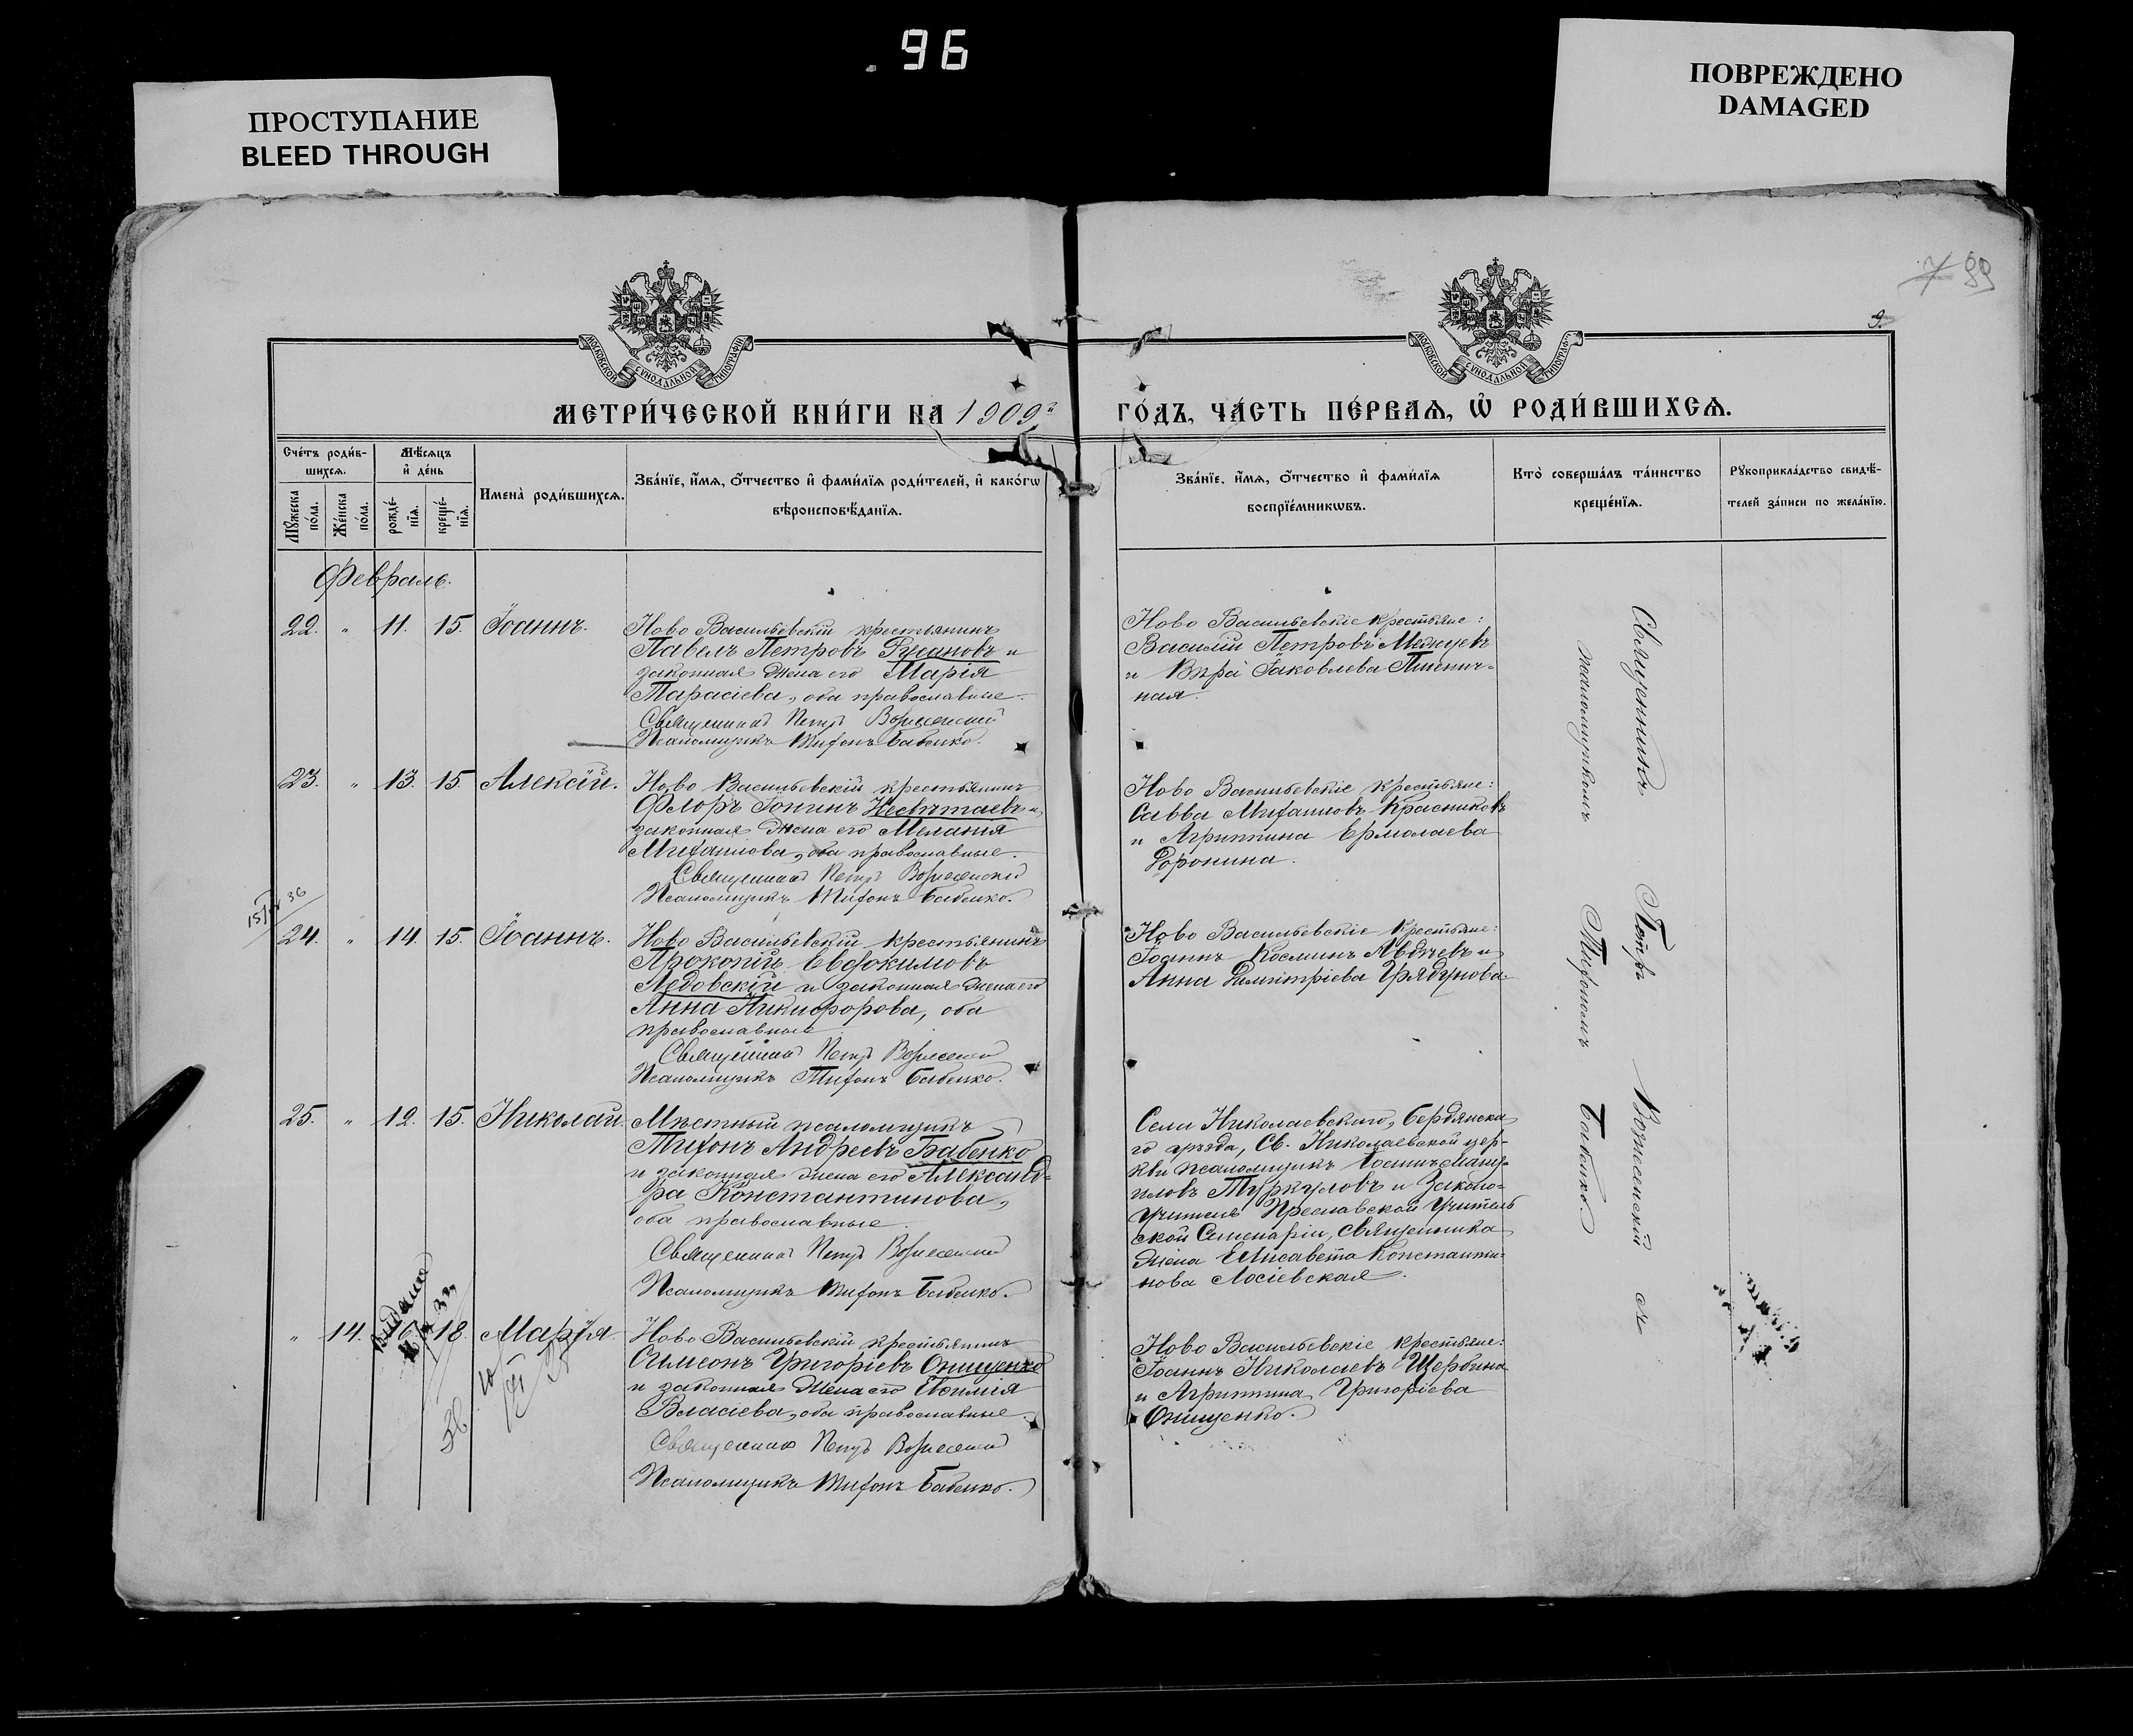 96
ПРОСТУПАНИЕ
BLEED THROUGH
ПОВРЕЖДЕНО
DAMAGED
7 99
9.
МОСКОВСКОЙ СѴНОДАЛЬНОЙ ТИПОГРАФІИ
МОСКОВСКОЙ СѴНОДАЛЬНОЙ ТИПОГРАФІИ
МЕТРИ́ЧЕСКОЙ КНИ́ГИ НА 1909 г
ГО́ДЪ, ЧА́СТЬ ПЕ́РВАѦ, Ѽ РОДИ́ВШИХСѦ.
Сче́тъ роди́в-
шихсѧ.
Мѣ́сѧцъ
и҆ де́нь
Мꙋ́жеска
по́ла.
Же́нска
по́ла.
рожде́-
нїѧ.
креще́-
нїѧ.
Имена̀ роди́вшихсѧ.
Зва́нїе, и҆́мѧ, ѻ҆́тчество и҆ фами́лїѧ роди́телей, и҆ како́гѡ
вѣроисповѣ́данїѧ.
Зва́нїе, и҆́мѧ, ѻ҆́тчество и҆ фами́лїѧ
воспрїе́мникѡвъ.
Кто̀ соверша́лъ та́инство
креще́нїѧ.
Рꙋкоприкла́дство свидѣ́-
телей за́писи по жела́нїю.
Февраль.
22. " 11. 15. Іоаннъ.
Ново Васильевскій крестьянинъ
Павелъ Петровъ Русановъ и
законная жена его Марія
Тарасіева, оба православные.
Священникъ Петръ Вознесенскій
Псаломщикъ Тихонъ Бабенко.
Ново Васильевскіе крестьяне:
Василій Петровъ
и Вѣра Іаковлева Пшенич-
ная.
23. " 13. 15. Алексій.
Ново Васильевскій крестьянинъ
Флоръ Іонинъ Несвѣтаевъ и
законная жена его Меланія
Михаилова, оба православные.
Священникъ Петръ Вознесенскій
Псаломщикъ Тихонъ Бабенко.
Ново Васильевскіе крестьяне:
Савва Михаиловъ Красниковъ
и Агриппина Ермолаева
Доронина.
24. " 14. 15. Іоаннъ.
Ново Васильевскій крестьянинъ
Прокопій Евдокимовъ
Ледовскій и законная жена его
Анна Никифорова, оба
православные
Священникъ Петръ Вознесенскій
Псаломщикъ Тихонъ Бабенко.
Ново Васильевскіе крестьяне:
Іоаннъ Косминъ Авдѣевъ и
Анна Димитріева Грядунова.
25. " 12. 15. Николай.
Мѣстный псаломщикъ
Тихонъ Андреевъ Бабенко
и законная жена его Александ-
ра Константинова,
оба православные.
Священникъ Петръ Вознесенскій
Псаломщикъ Тихонъ Бабенко.
Села Николаевскаго, Бердянска-
го уѣзда, Св. Николаевской цер-
кви псаломщикъ ІоаннъМану-
иловъ Туркуловъ и Законо-
учителя Преславской Учитель
ской Семинаріи, священника
жена Елисавета Константи-
нова Лосіевская.
" 14. 16. 18. Марія.
Выдано
36
Ново Васильевскій крестьянинъ
Симеонъ Григоріевъ Онищенко
и законная жена его Евфимія
Власіева, оба православные.
Священникъ Петръ Вознесенскій
Псаломщикъ Тихонъ Бабенко.
Ново Васильевскіе крестьяне:
Іоаннъ Николаевъ Щербина
и Агриппина Григоріева
Онищенко.
Священникъ Петръ Вознесенскій съ
псаломщикомъ Тихономъ Бабенко.